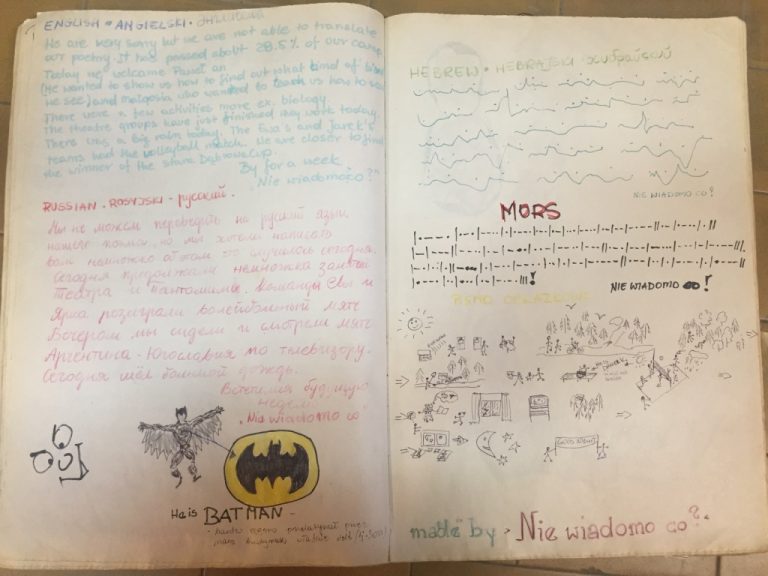 ENGLISH • ANGIELSKI •
We are very sorry but we are not able to translate
our poetry. It has passed about 28.5% of our camp.
Today we welcome Paweł an
(He wanted to show us how to find out what kind of
we see) and Małgosia who wanted to teach us how to
There were a few activities more ex. biology.
The theatre groups have just finished they work today.
There was a big rain today. The Ewa's and Jarek's
teams had the volleyball match. We are closer to find
the winner of the Stara Dąbrowa Cup.
By for a week
"Nie wiadomo co?"
RUSSIAN • ROSYJSKI - русский •
Мы не можем переводить на руский язык
нашего поэмы, но мы хотели написать
вам немножко об том что случилось сегодня.
Сегодня продолжали немножка занятий
Театра и Пантомимы. Команды Евы и
Ярка розиграли волейбольный матч.
Вечером мы сидели и смотрели матч
Аргентина - Югославия по телевизору.
Сегодня шёл большой дождь.
Встетимя будущую
неделю
"Nie wiadomo co"
He is BATMAN -
HEBREW • HEBRAJSKI
NIE WIADOMO CO?
MORS
NIE WIADOMO CO?
PISMO OBRAZKOWE
GOOD NIGHT
made by • Nie wiadomo co?